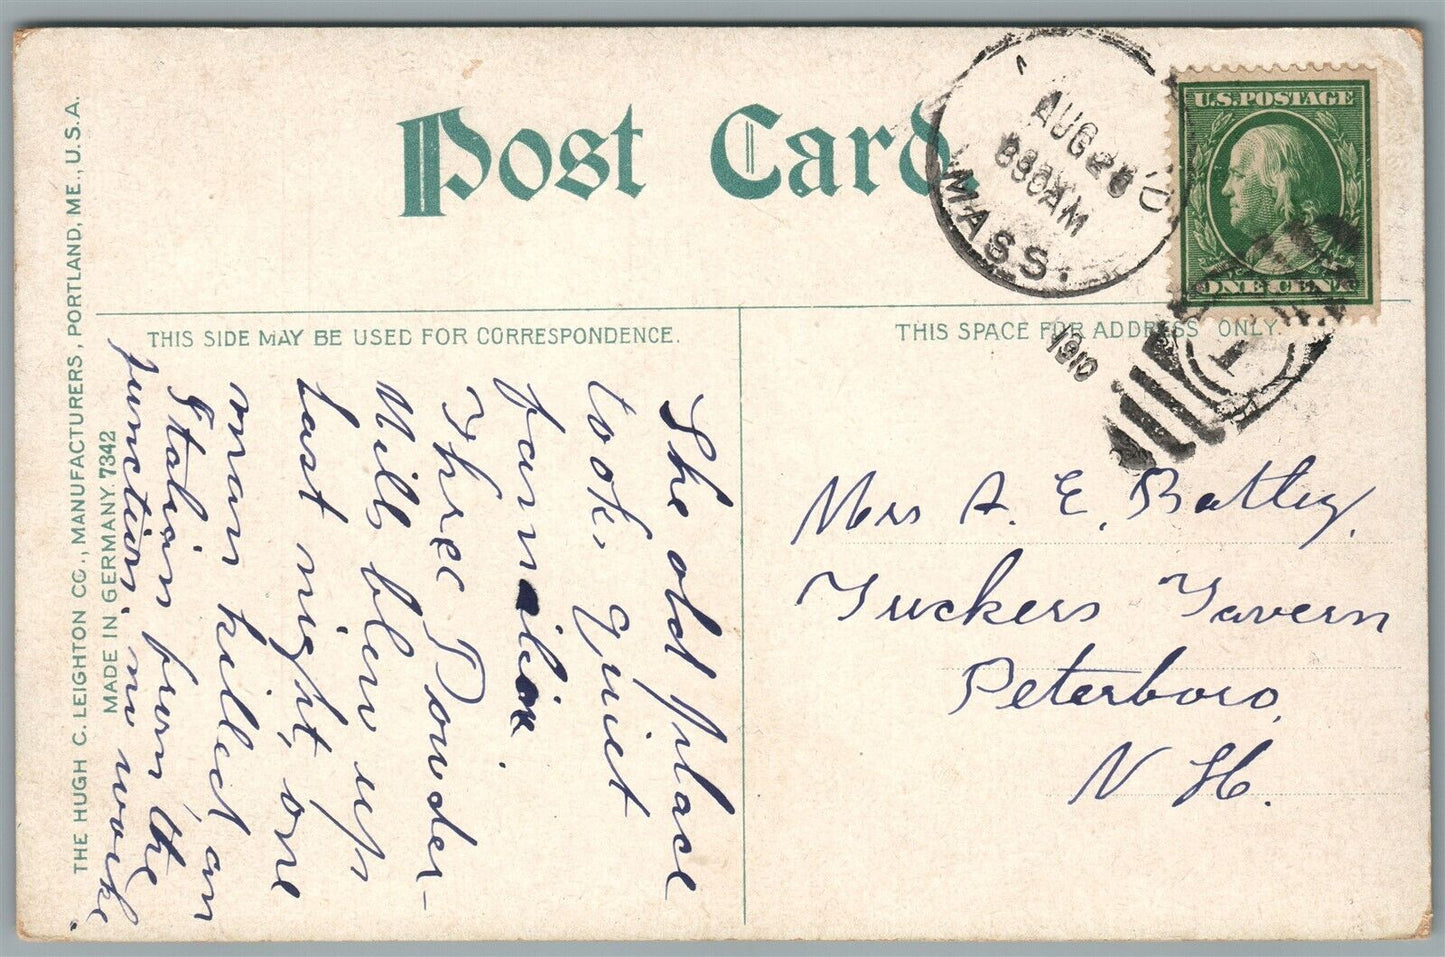 Post Card.
AUG 26
830AM
MASS.
1910
U.S. POSTAGE
ONE CENT
1
THIS SIDE MAY BE USED FOR CORRESPONDENCE.
THIS SPACE FOR ADDRESS ONLY.
The old place
look, quiet
familiar.
Three Powder-
Mills blew up
last night, one
man killed, an
Italian from the
junction, no work.
Mrs A. E. Batley.
Tuckers Tavern
Peterboro,
N. H.
THE HUGH C. LEIGHTON CO., MANUFACTURERS, PORTLAND, ME., U.S.A.
MADE IN GERMANY. 7342